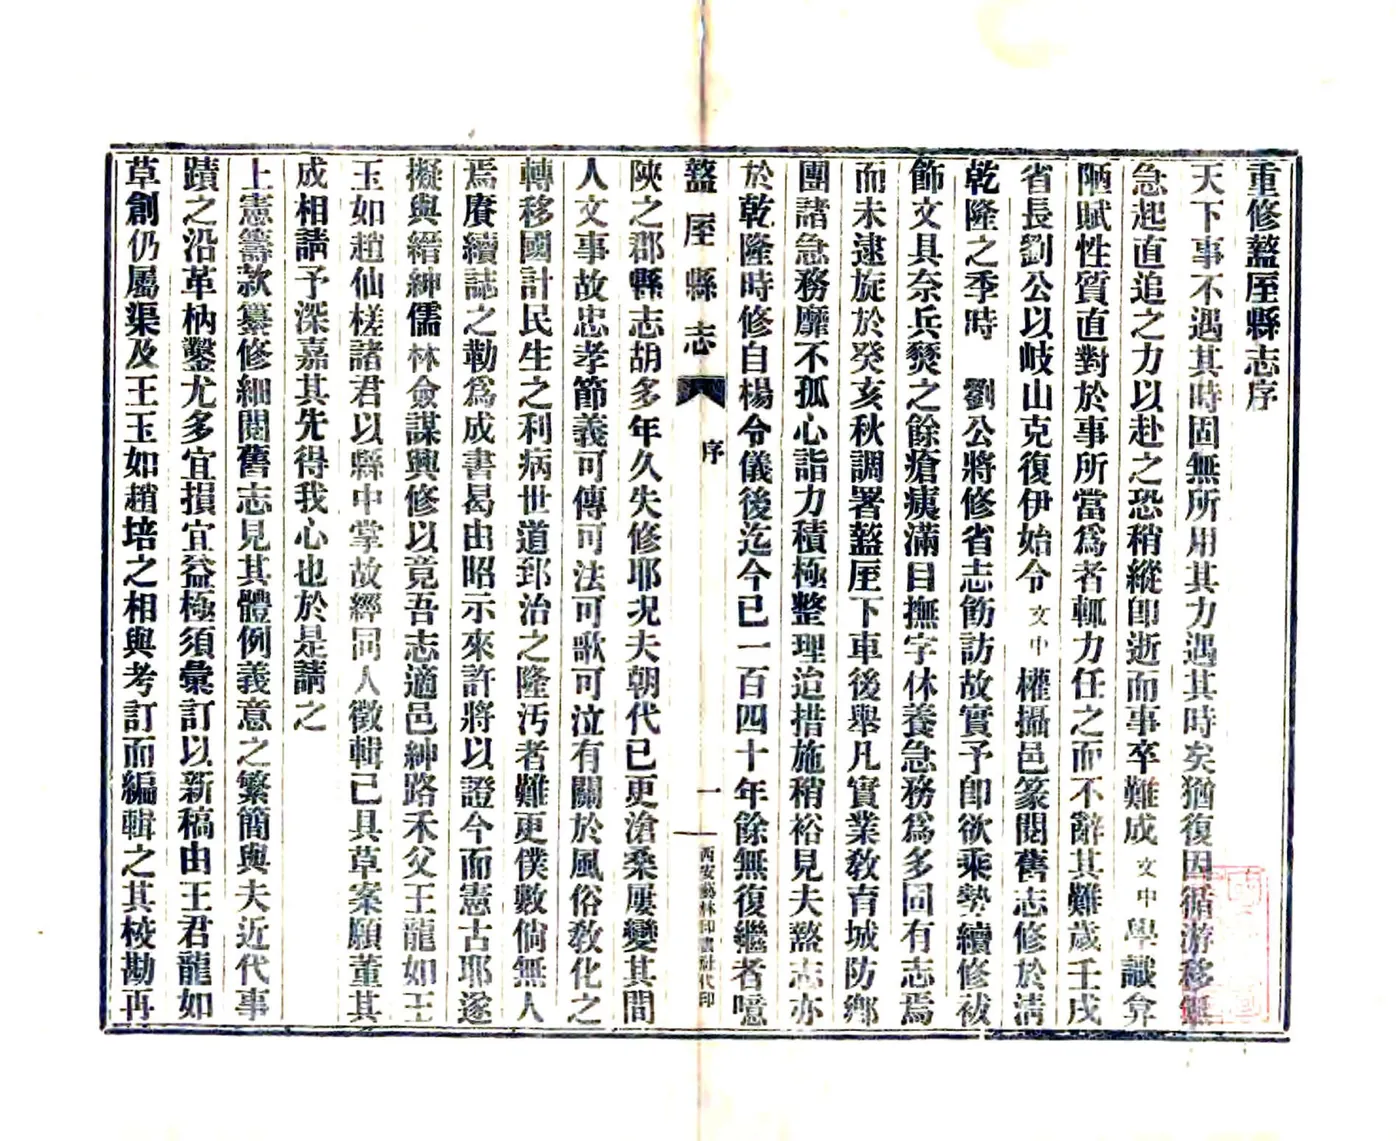 重修盩厔縣志序
天下事不遇其時固無所用其力遇其時矣猶復因循游移無
急起直追之力以赴之恐稍縱卽逝而事卒難成文中學識弇
陋賦性質直對於事所當爲者輒力任之而不辭其難歲壬戌
省長劉公以岐山克復伊始令文中權攝邑篆閱舊志修於淸
乾隆之季時 劉公將修省志飭訪故實予卽欲乘勢續修祓
飾文具奈兵燹之餘瘡痍滿目撫字休養急務爲多回有志焉
而未逮旋於癸亥秋調署盩厔下車後舉凡實業敎育城防鄕
團諸急務靡不孤心詣力積極整理迨措施稍裕見夫盩志亦
於乾隆時修自楊令儀後迄今已一百四十年餘無復繼者噫
盩厔縣志 序 一 西安藝林印書社代印
陝之郡縣志胡多年久失修耶况夫朝代已更滄桑屢變其間
人文事故忠孝節義可傳可法可歌可泣有關於風俗敎化之
轉移國計民生之利病世道郅治之隆汚者難更僕數倘無人
焉賡續誌之勒爲成書曷由昭示來許將以證今而憲古耶遂
擬與縉紳儒林僉謀興修以竟吾志適邑紳路禾父王龍如王
玉如趙仙槎諸君以縣中掌故經同人徵輯已具草案願董其
成相請予深嘉其先得我心也於是請之
上憲籌款纂修細閱舊志見其體例義意之繁簡與夫近代事
蹟之沿革枘鑿尤多宜損宜益極須彙訂以新稿由王君龍如
草創仍屬渠及王玉如趙培之相與考訂而編輯之其校勘再